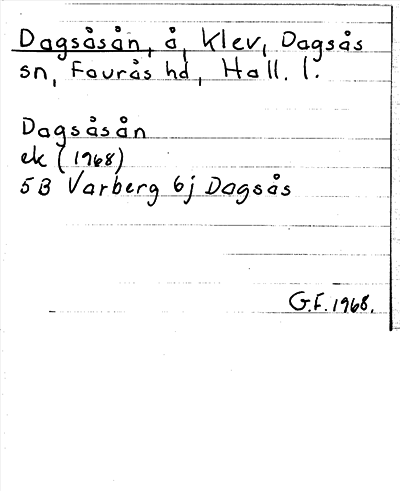 Dagsåsån, å, Klev, Dagsås
sn, Faurås hd, Hall. l.
Dagsåsån
ek (1968)
5B Varberg 6j Dagsås
G.F. 1968.